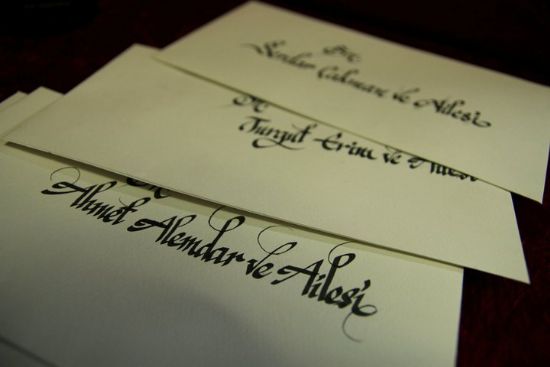 Serdar Çakman ve Ailesi
Turgut Erim ve Ailesi
Ahmet Alemdar ve Ailesi